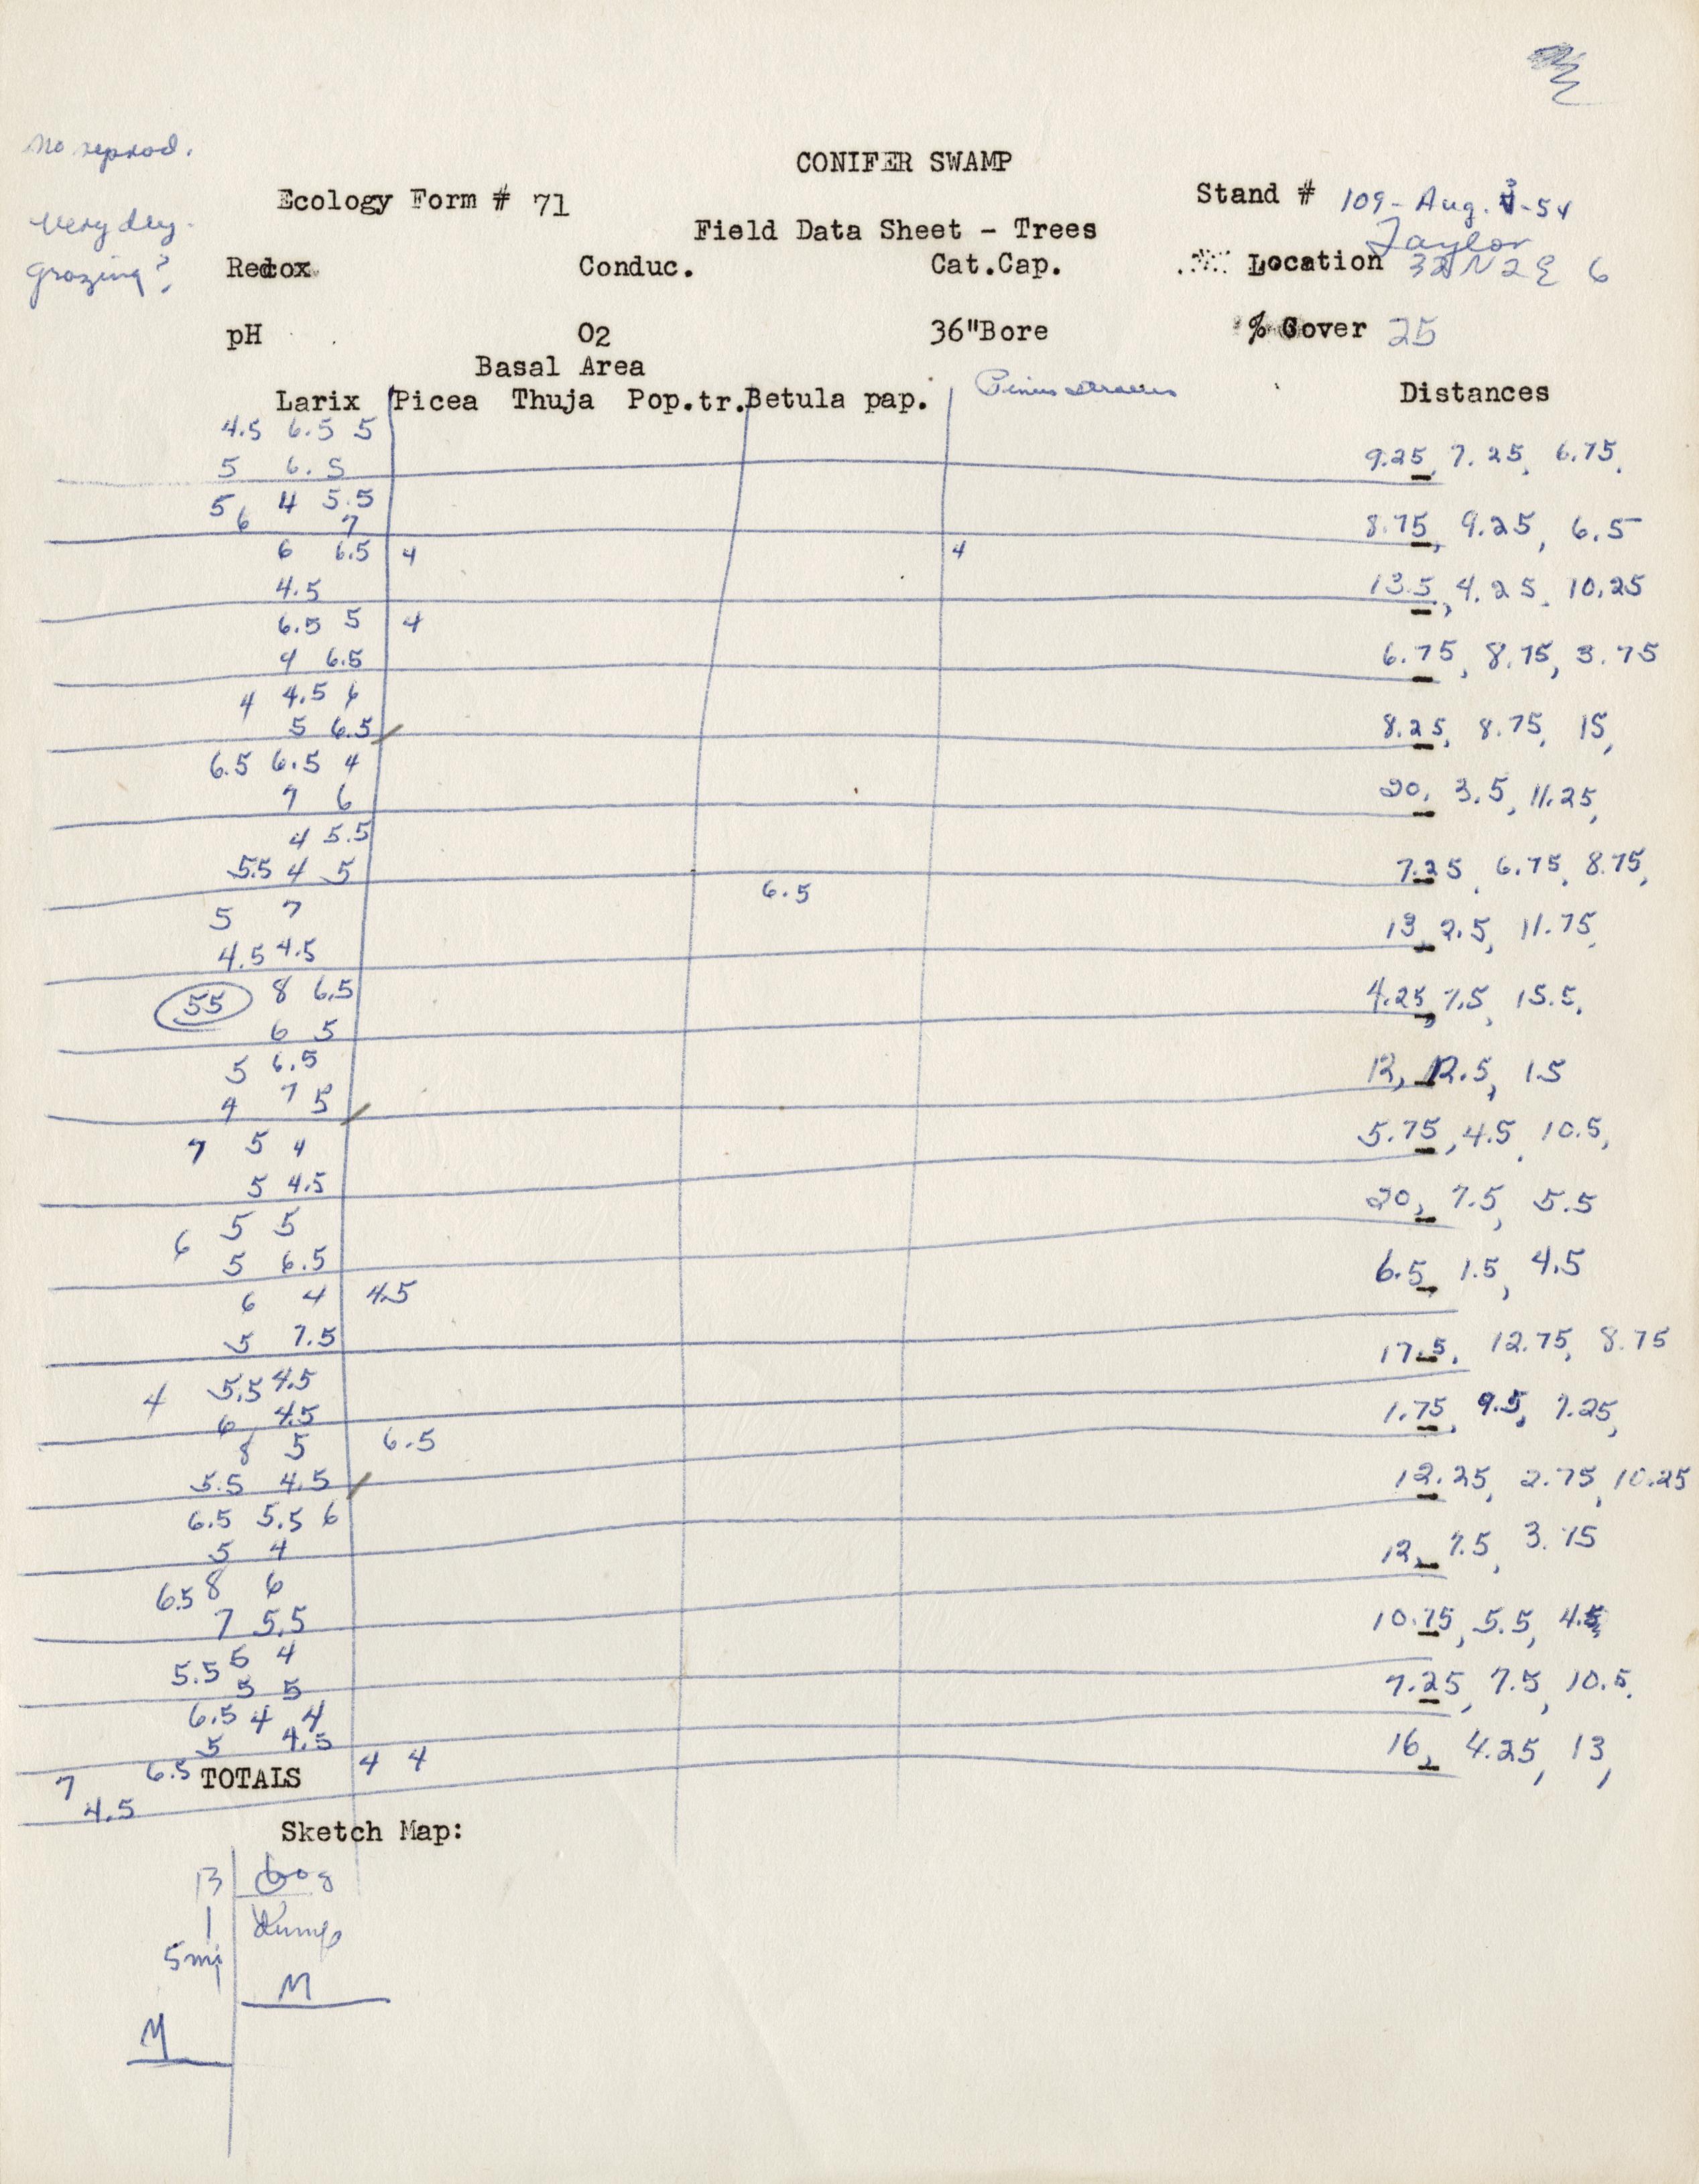 No reprod.
CONIFER SWAMP
Ecology Form # 71
Stand # 109-Aug. 3-54
Very dry.
Field Data Sheet - Trees
Taylor
grazing?
Redox
Conduc.
Cat.Cap.
Location 32N2E 6
pH
O2
36"Bore
% Cover 25
Basal Area
Larix Picea Thuja Pop.tr. Betula pap. Pinus strobus Distances
4.5 6.5 5
5 6.5 9.25, 7.25, 6.75,
5 4 5.5
6 7 8.75, 9.25, 6.5
6 6.5 4 4
4.5 13.5, 4.25, 10.25
6.5 5 4
4 6.5 6.75, 8.75, 3.75
4 4.5 6
5 6.5 8.25, 8.75, 15,
6.5 6.5 4
7 6 20, 3.5, 11.25,
4 5.5
5.5 4 5 7.25, 6.75, 8.75,
6.5
5 7
4.5 4.5 13, 2.5, 11.75,
55 8 6.5
6 5 4.25, 7.5, 15.5,
5 6.5
4 7 5 12, 12.5, 1.5
7 5 4
5 4.5 5.75, 4.5, 10.5,
6 5 5
5 6.5 20, 7.5, 5.5
6 4 4.5
5 7.5 6.5, 1.5, 4.5
4 5.5 4.5
6 4.5 17.5, 12.75, 8.75
8 5 6.5
5.5 4.5 1.75, 9.5, 7.25,
6.5 5.5 6
5 4 12.25, 2.75, 10.25
6.5 8 6
7 5.5 12, 7.5, 3.75
5.5 5 4
5 5 10.75, 5.5, 4.5,
6.5 4 4
5 4.5 7.25, 7.5, 10.5,
7 6.5 TOTALS 4 4
4.5 16, 4.25, 13,
Sketch Map:
13 bog
5mi
M
M